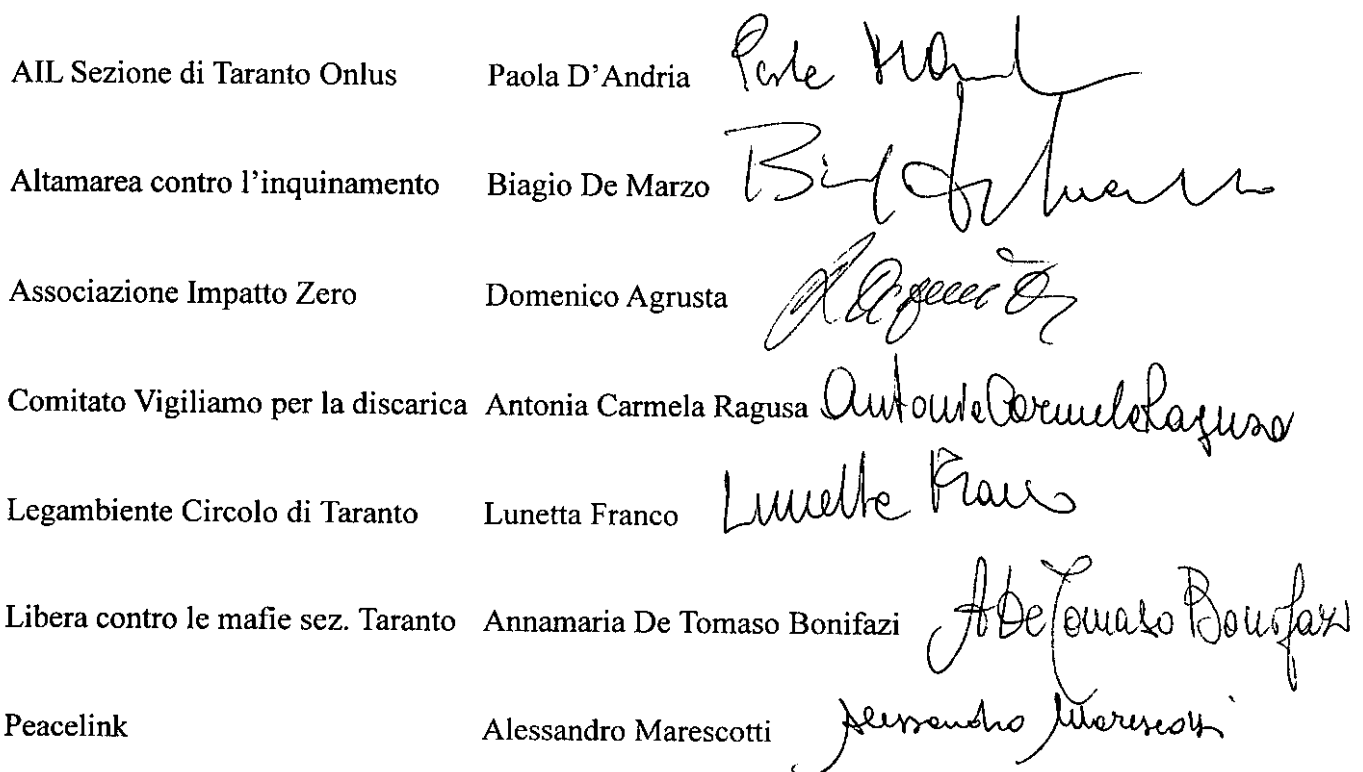 AIL Sezione di Taranto Onlus Paola D'Andria
Altamarea contro l'inquinamento Biagio De Marzo
Associazione Impatto Zero Domenico Agrusta
Comitato Vigiliamo per la discarica Antonia Carmela Ragusa Antonia Carmela Ragusa
Legambiente Circolo di Taranto Lunetta Franco Lunetta Franco
Libera contro le mafie sez. Taranto Annamaria De Tomaso Bonifazi A De Tomaso Bonifazi
Peacelink Alessandro Marescotti Alessandro Marescotti